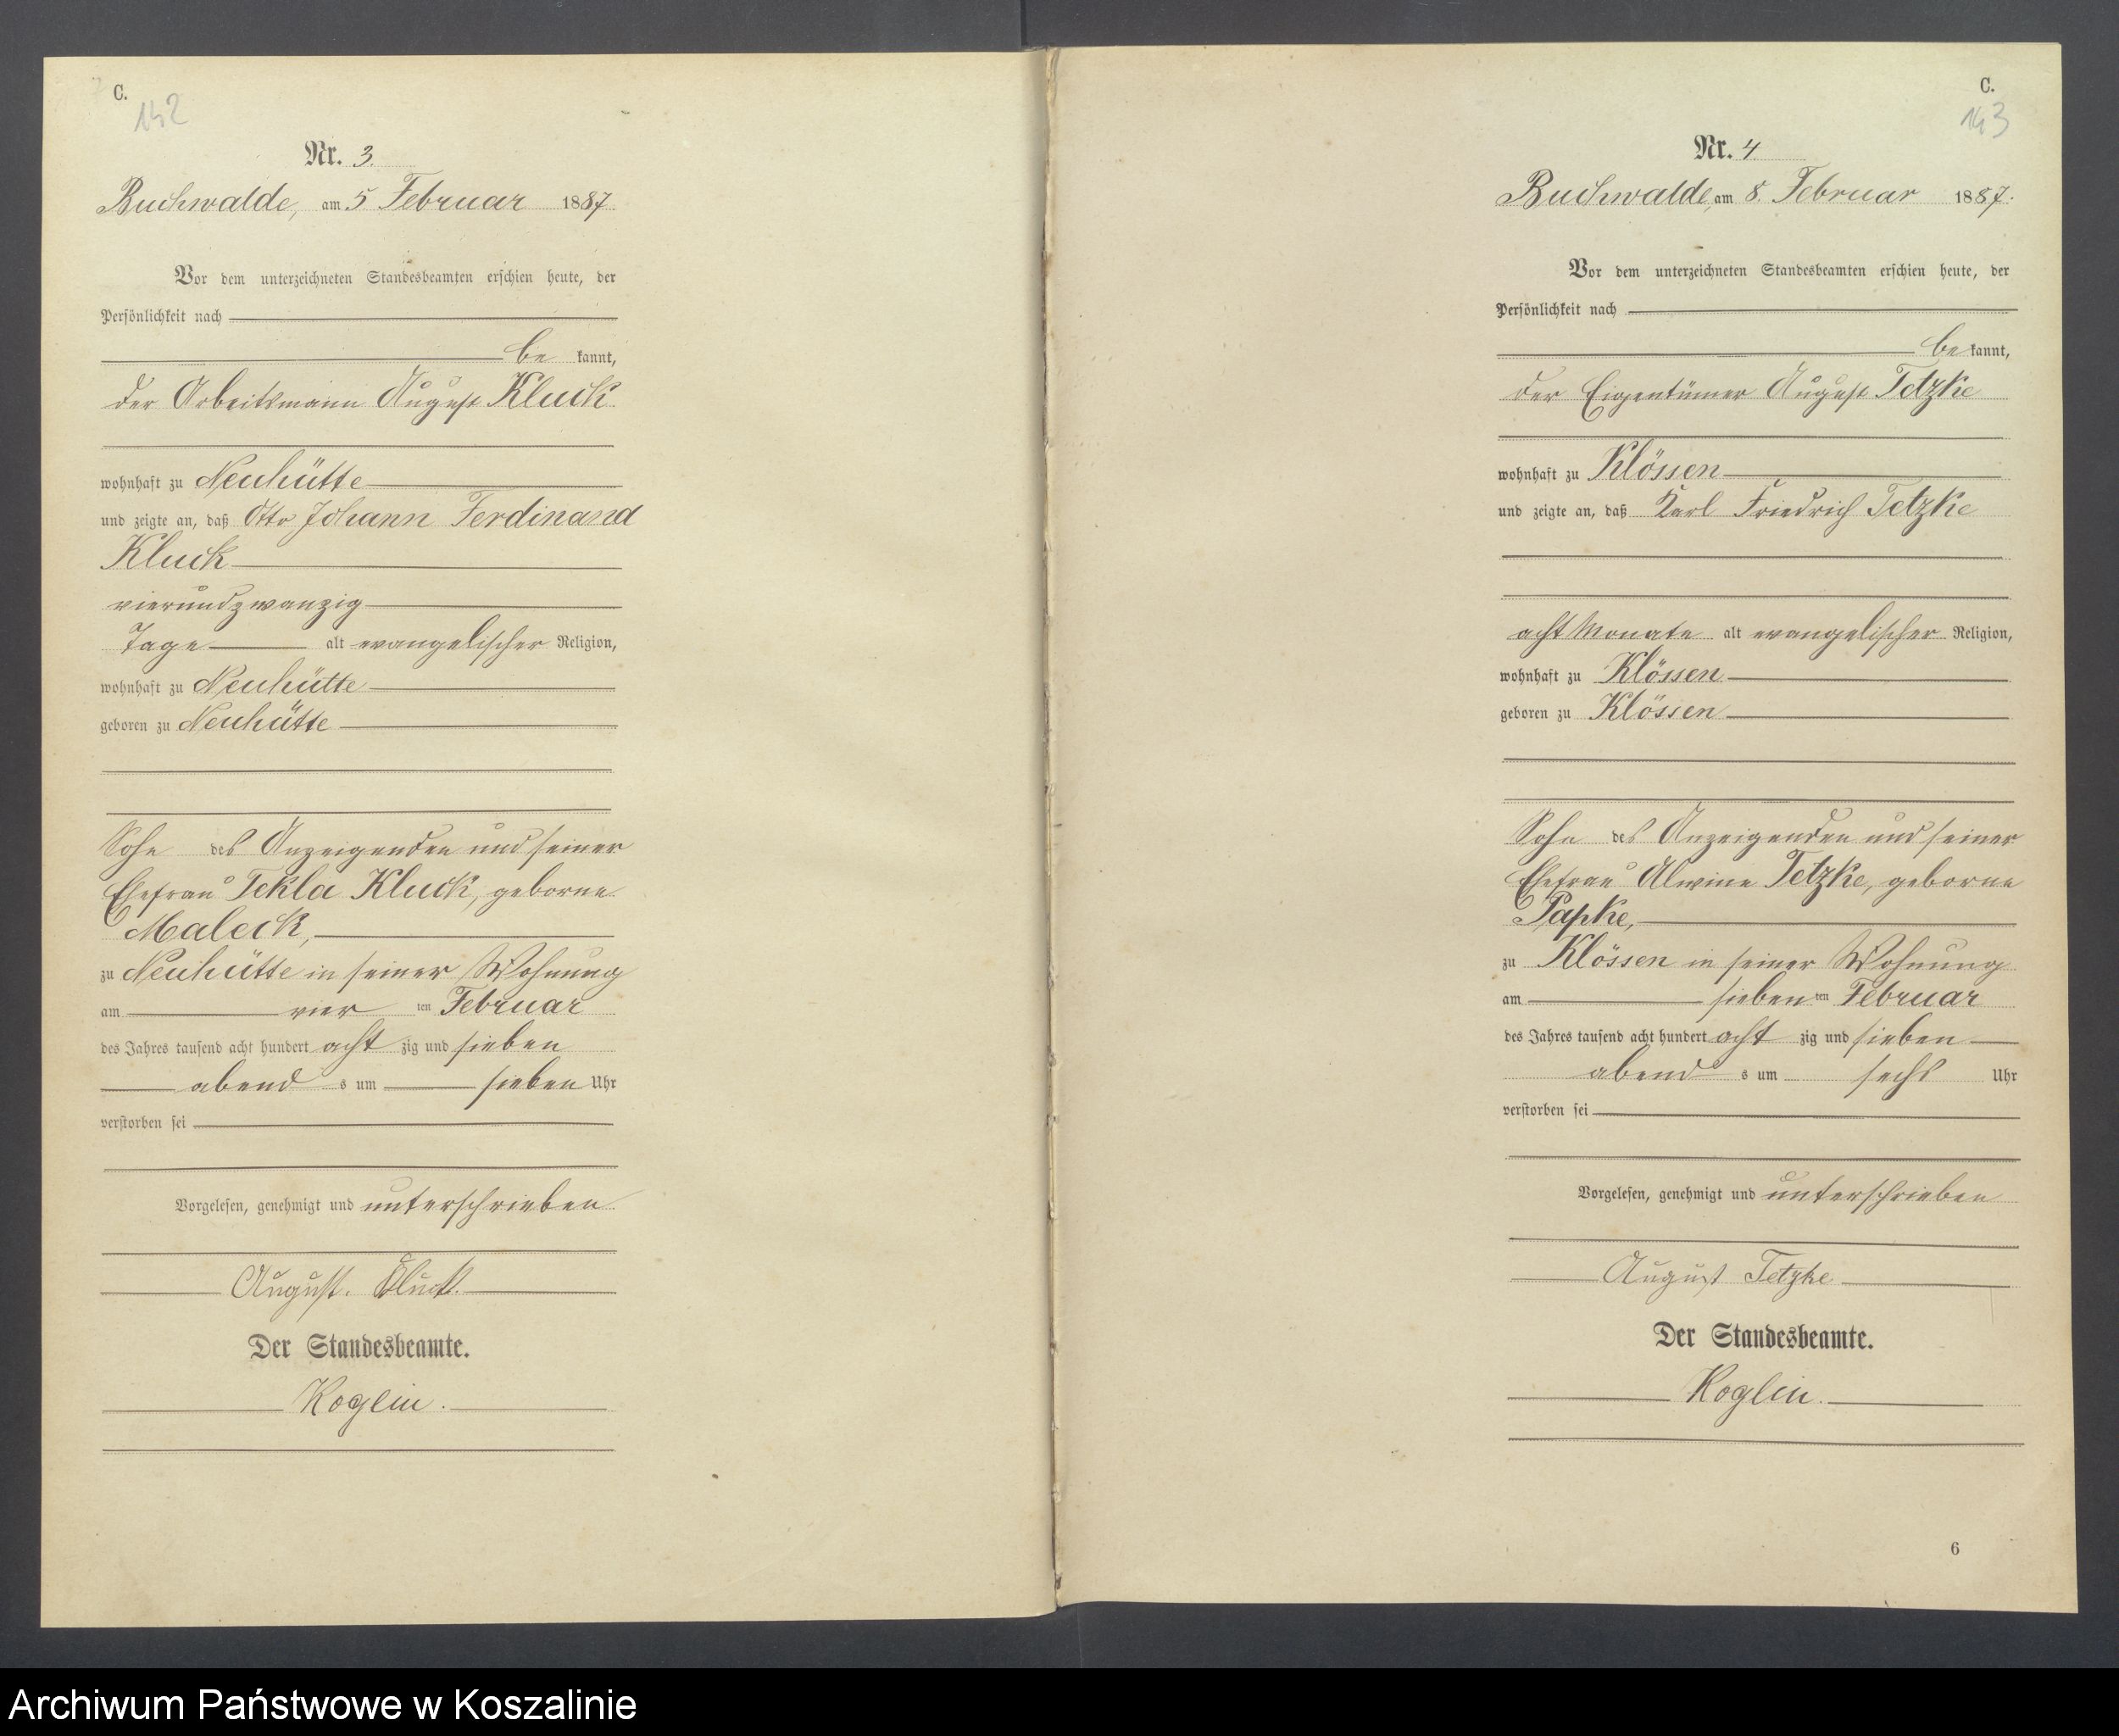 C.
142
Nr. 3.
Buchwalde, am 5 Februar 1887.
Vor dem unterzeichneten Standesbeamten erschien heute, der
Persönlichkeit nach
be kannt,
der Arbeitsmann August Kluck
wohnhaft zu Neuhütte
und zeigte an, daß Otto Johann Ferdinand
Kluck
vierundzwanzig
Tage alt evangelischer Religion,
wohnhaft zu Neuhütte
geboren zu Neuhütte
Sohn des Anzeigenden und seiner
Ehefrau Tekla Kluck, geborne
Maleck,
zu Neuhütte in seiner Wohnung
am vier ten Februar
des Jahres tausend acht hundert acht zig und sieben
abend s um sieben Uhr
verstorben sei
Vorgelesen, genehmigt und unterschrieben
August. Kluck.
Der Standesbeamte.
Koglin.
C.
143
Nr. 4
Buchwalde, am 8. Februar 1887.
Vor dem unterzeichneten Standesbeamten erschien heute, der
Persönlichkeit nach
be kannt,
der Eigentümer August Tetzke
wohnhaft zu Klössen
und zeigte an, daß Karl Friedrich Tetzke
acht Monate alt evangelischer Religion,
wohnhaft zu Klössen
geboren zu Klössen
Sohn des Anzeigenden und seiner
Ehefrau Alwine Tetzke, geborne
Papke,
zu Klössen in seiner Wohnung
am sieben ten Februar
des Jahres tausend acht hundert acht zig und sieben
abend s um sechs Uhr
verstorben sei
Vorgelesen, genehmigt und unterschrieben
August Tetzke
Der Standesbeamte.
Koglin.
6
Archiwum Państwowe w Koszalinie